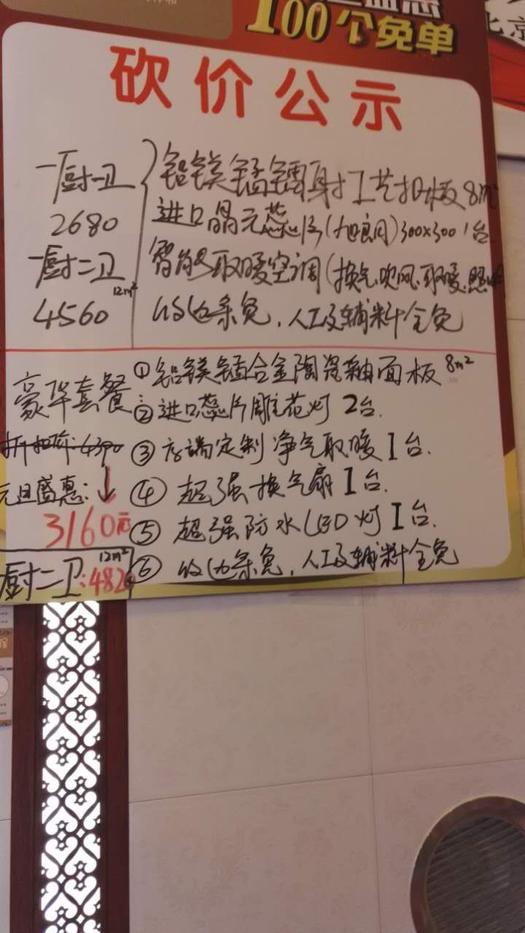 100个免单
北京
砍价公示
一厨一卫
2680
一厨二卫
12m²
4560
铝镁锰镭射工艺扣板 8m²
进口晶元蕊片(太阳风)300x300 1台
智能取暖空调(换气.吹风.取暖.照明
收边条免，人工及辅料全免
豪华套餐
折扣价:4390
元旦盛惠:↓
3160元
12m²
厨二卫:482
①铝镁锰合金陶瓷釉面板 8m²
②进口蕊片雕花灯 2台.
③高端定制净气取暖1台.
④超强换气扇1台.
⑤超强防水LED灯1台.
⑥收边条免，人工及辅料全免